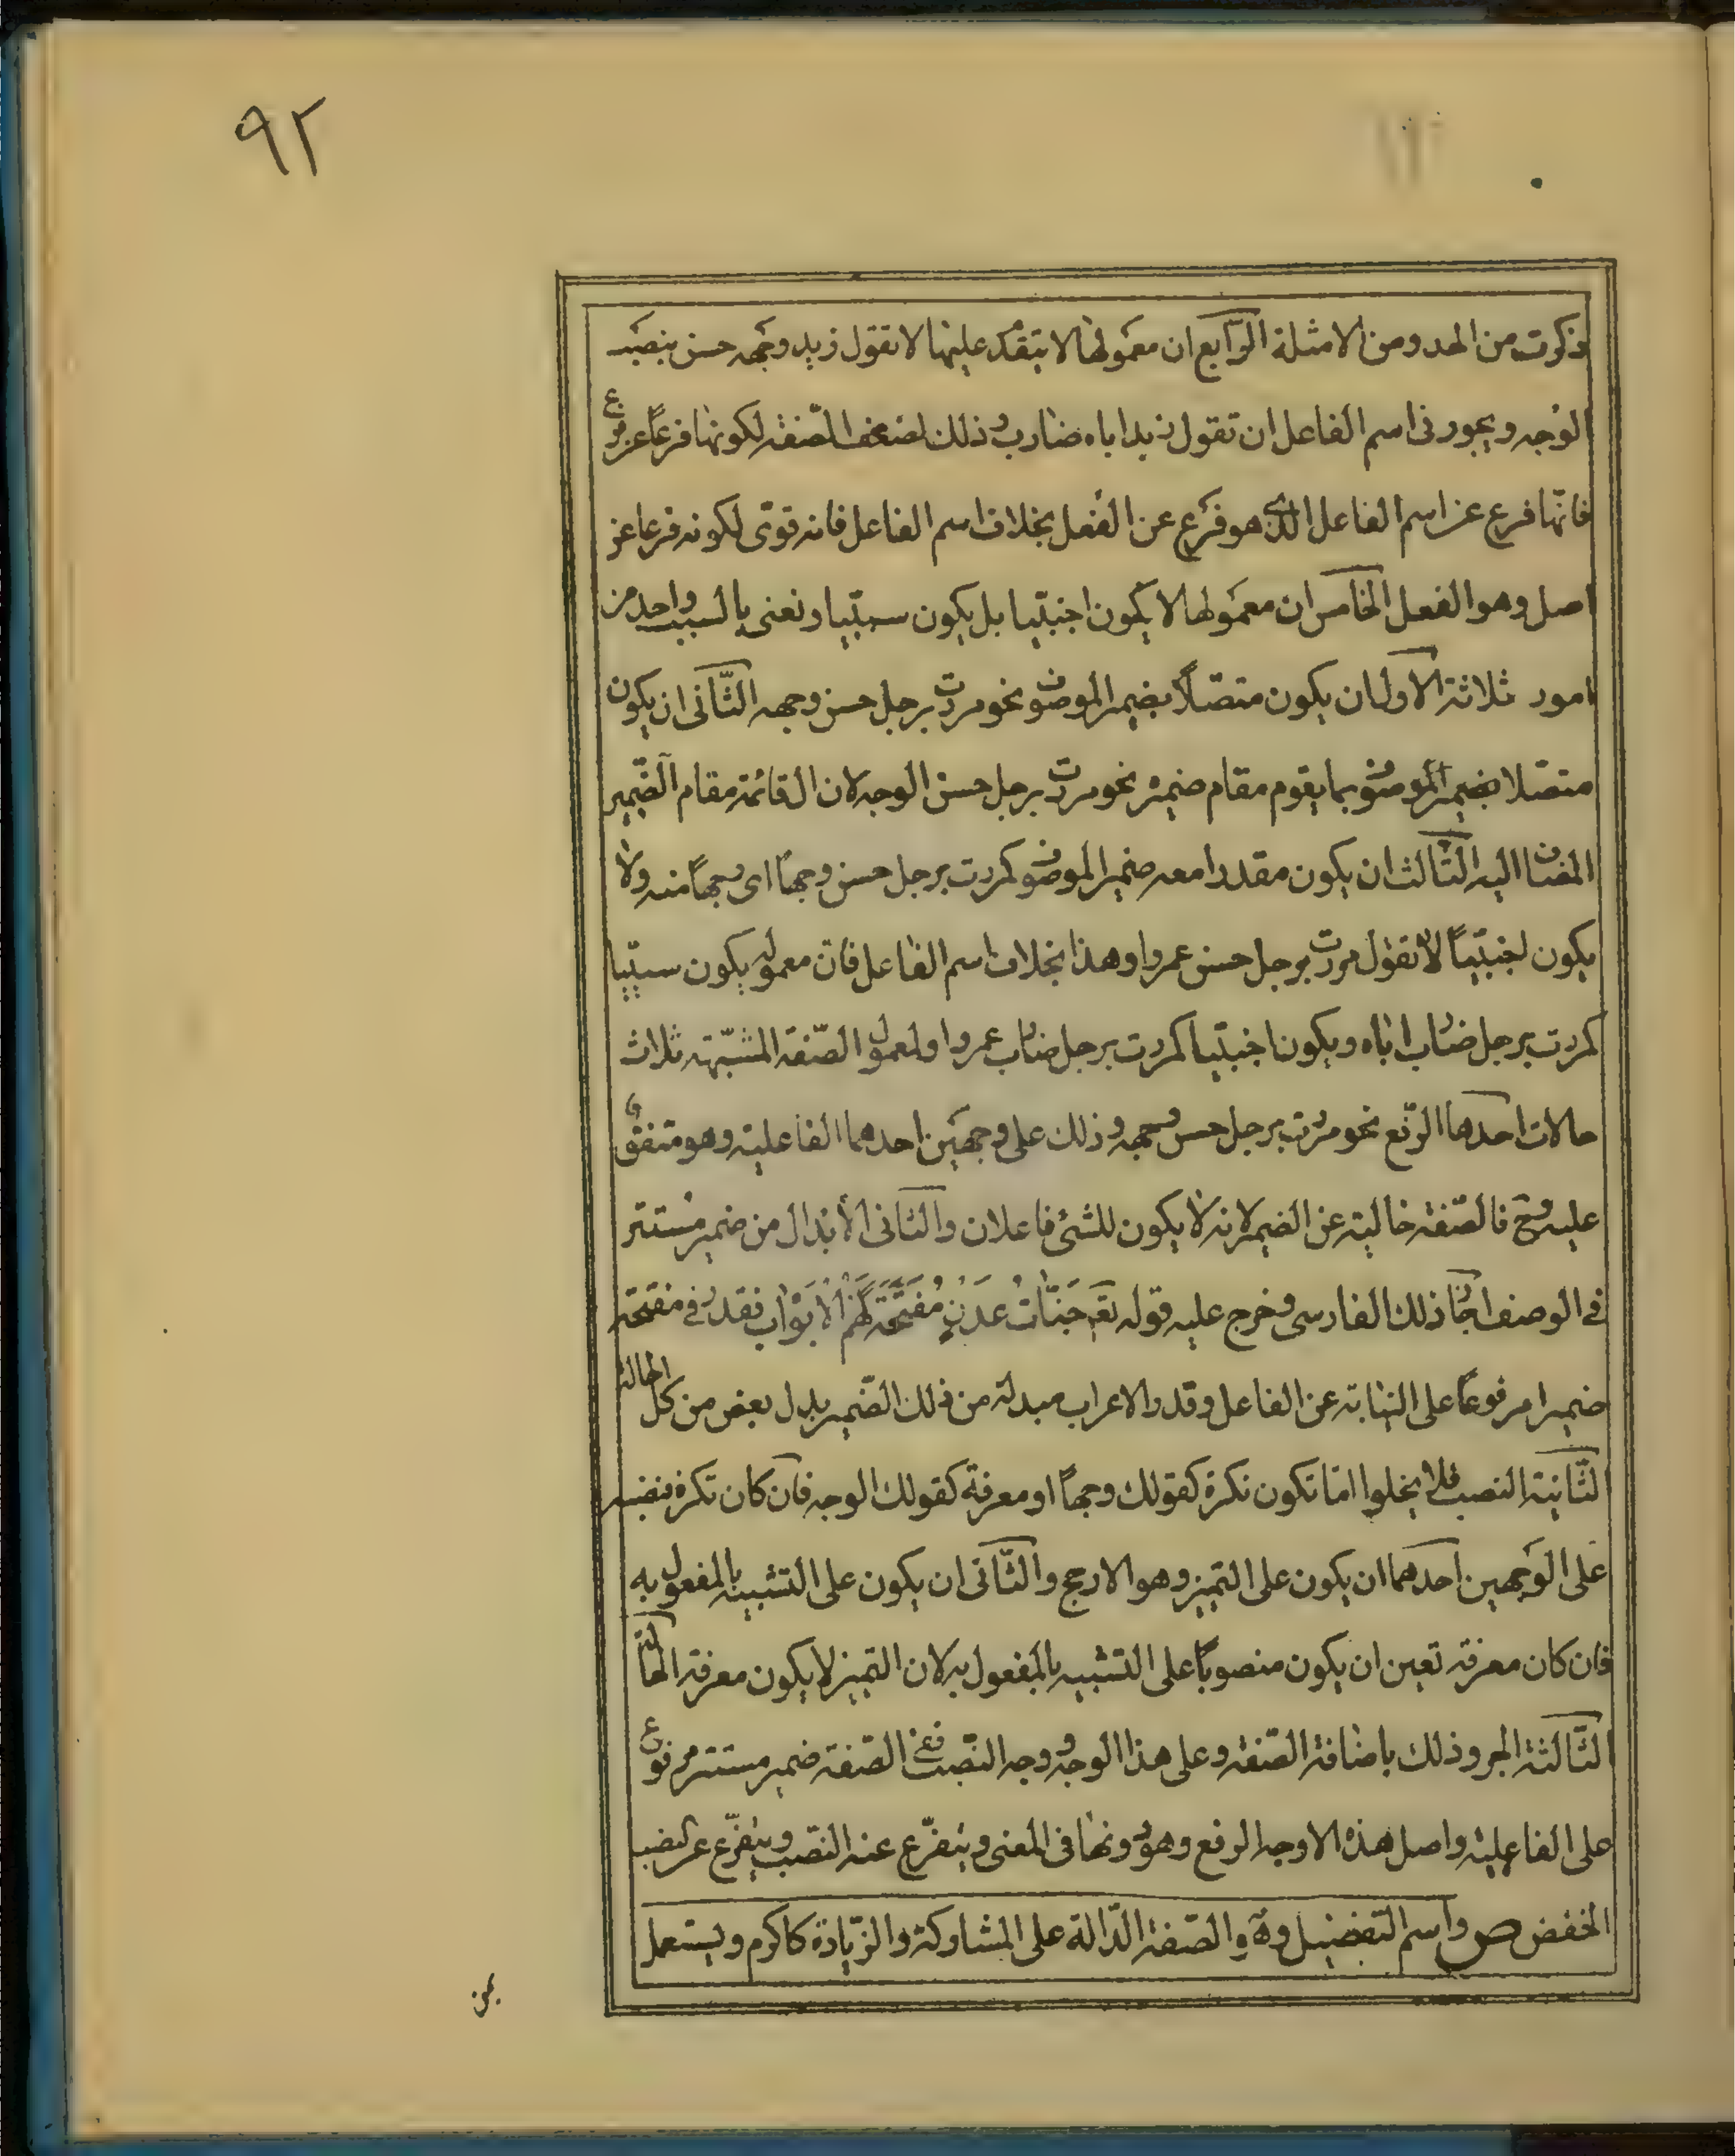 ٩٢
ذكرت من الحد ومن الامثلة الرّابع ان معمولها لا يتقدم عليها لا تقول زيد وجهه حسن بنصب
الوجه ويجوز فى اسم الفاعل ان تقول زيد اباه ضارب وذلك لضعف الصّفة لكونها فرعاً عن فرع
فانّها فرع عن اسم الفاعل الذى هو فرع عن الفعل بخلاف اسم الفاعل فانه قوىّ لكونه فرعا عن
اصل وهو الفعل الخامس ان معمولها لا يكون اجنبيّا بل يكون سببيّا ونعنى بالسبب واحد من
امور ثلاثة الاول ان يكون متصّلاً بضمير الموصوف نحو مررت برجل حسن وجهه الثّانى ان يكون
متصّلا بضمير الموصوف بما يقوم مقام ضميره نحو مررت برجل حسن الوجه لان ال قائمة مقام الضّمير
المضاف اليه الثّالث ان يكون مقدرا معه ضمير الموصوف كمررت برجل حسن وجهاً اى وجهاً منه ولا
يكون اجنبيّاً لا تقول مررت برجل حسن عمروا وهذا بخلاف اسم الفاعل فان معموله يكون سببيّا
كمررت برجل ضارب اباه ويكون اجنبيّا كمررت برجل ضارب عمروا ولمعمول الصّفة المشبّهة ثلاث
حالات احدها الرّفع نحو مررت برجل حسن وجهه وذلك على وجهين احدهما الفاعلية وهو متفق
عليه وح فالصّفة خالية عن الضمير لانه لا يكون للشئ فاعلان والثانى الابدال من ضمير مستتر
فى الوصف اجاز ذلك الفارسى وخرج عليه قوله تعم جَنّاتُ عَدْنٍ مُفَتَّحَةً لَهُمُ الاَبْوَابُ فقدر فى مفتحة
ضميرا مرفوعاً على النيابة عن الفاعل وقدر الاعراب مبدلة من ذلك الضّمير بدل بعض من كل الحالة
الثّانية النصب فلا يخلوا امّا تكون نكرة كقولك وجهاً او معرفة كقولك الوجه فان كان نكرة فنصبه
على الوجهين احدهما ان يكون على التميز وهو الارجح والثّانى ان يكون على التشبيه بالمفعول به
فان كان معرفة تعين ان يكون منصوباً على التشبيه بالمفعول به لان التميز لا يكون معرفة الحالة
الثّالثة الجر وذلك باضافة الصّفة وعلى هذا الوجه ووجه النّصب ففى الصّفة ضمير مستتر مرفوع
على الفاعلية واصل هذه الاوجه الرفع وهو دونها فى المعنى ويتفرّع عنه النّصب ويتفرّع عن النصب
الخفض ص واسم التفضيل وهو الصّفة الدّالة على المشاركة والزّيادة كاكرم ويستعمل
بمن